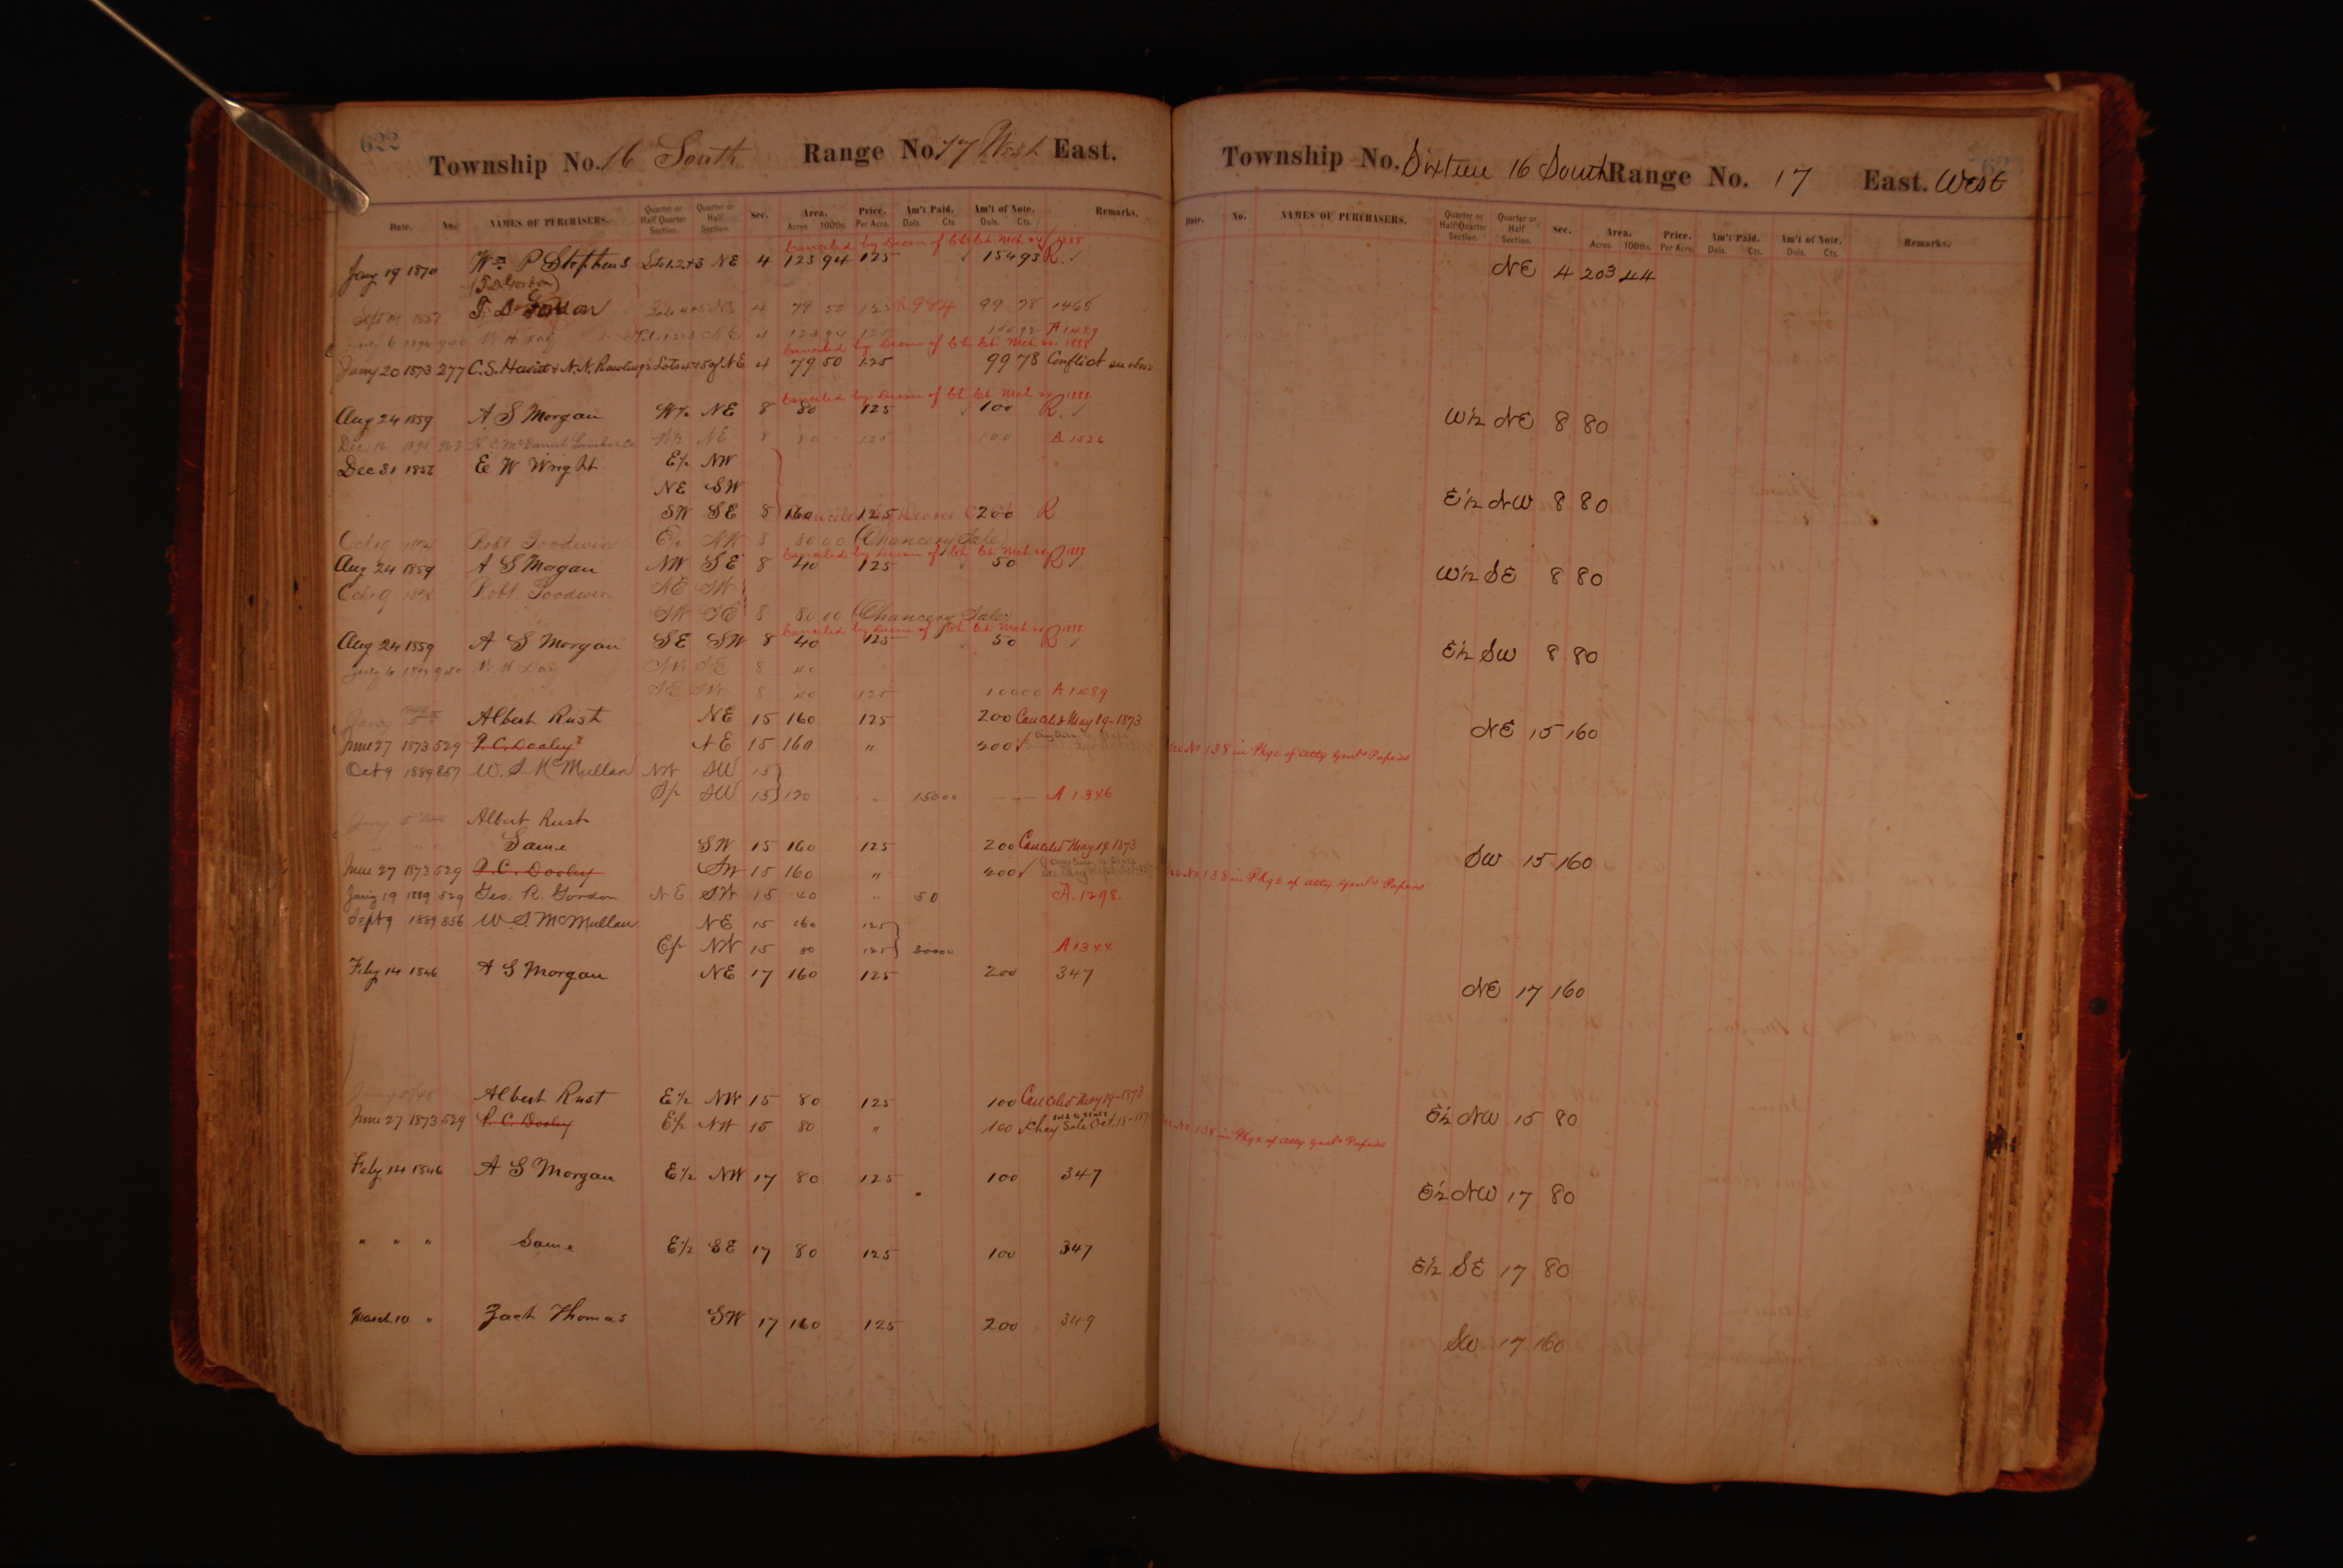 622
Township No. 16 South Range No. 17 West East.
Date. No. NAMES OF PURCHASERS. Quarter or Half Quarter Section. Quarter or Half Section. Sec. Area. Acres 100ths. Price. Per Acre. Am't Paid. Dols. Cts. Am't of Note. Dols. Cts. Remarks.
Canceled by Decree of Ch Ct Mch 1888
Jany 19 1870 Wm P Stephens Lots 1.2+3 NE 4 123 94 125 154 93 R. ✓
(T. D. Gordon)
T. D. Gordon Lots 4+5 NE 4 79 50 125 984 99 78 1465
July 6 940 W H Lag NE 4 123 94 125 154 92 A 1489
Canceled by Decree of Ch. Ct. Mch 1888
Jany 20 1873 277 C. S. & N. N. Rawlings Lots 4+5 of NE 4 79 50 125 99 78 Conflict
Canceled by Decree of Ch. Ct. Mch 1888
Aug 24 1859 A S Morgan W½ NE 8 80 125 100 R. ✓
Dec. 16 McDaniel Lumber Co W½ NE 8 80 125 100 A 1526
Dec 31 E W Wright E½ NW
NE SW
SW SE 8 160 125 200 R
Oct 9 Robt Goodwin E½ NW 8 80 00 (Chancery Sale)
Canceled by Decree of Ch. Ct. Mch 1888
Aug 24 1859 A S Morgan NW SE 8 40 125 50 R ✓
Oct 9 Robt Goodwin NE SW
SW SE 8 80 00 (Chancery Sale)
Canceled by Decree of Ch. Ct. Mch 1888
Aug 24 1859 A S Morgan SE SW 8 40 125 50 R ✓
July 6 940 W H Lag NW SE 8 40
SE SW 8 40 125 100 00 A 1489
Jany Albert Rust NE 15 160 125 200 Canceled May 19-1873
June 27 1873 529 P. C. Dooley NE 15 160 " 400 ✓
Oct 9 1889 857 W. S. McMullan NW SW 15
S½ SW 15 120 " 150 00 A 1346
Jany 5 Albert Rust
Same SW 15 160 125 200 Canceled May 19 1873
June 27 1873 529 P. C. Dooley SW 15 160 " 400 ✓
Jany 19 1889 829 Geo. R. Gordon NE SW 15 40 " 50 A. 1298.
Sept 9 1889 856 W. S. McMullan NE 15 160 125
E½ NW 15 80 125 300 00 A 1344
Feby 14 1846 A S Morgan NE 17 160 125 200 347
Jany Albert Rust E½ NW 15 80 125 100 Canceled May 19-1873
June 27 1873 529 P. C. Dooley E½ NW 15 80 " 100 ✓ Sold to State Chcy Sale Oct. 15-
Feby 14 1846 A S Morgan E½ NW 17 80 125 100 347
" " " Same E½ SE 17 80 125 100 347
March 10 " Zach Thomas SW 17 160 125 200 349
Township No. Sixteen 16 South Range No. 17 East. West
Date. No. NAMES OF PURCHASERS. Quarter or Half-Quarter Section. Quarter or Half Section. Sec. Area. Acres 100ths. Price. Per Acre. Am't Paid. Dols. Cts. Am't of Note. Dols. Cts. Remarks.
NE 4 203 44
W½ NE 8 80
E½ NW 8 80
W½ SE 8 80
E½ SW 8 80
NE 15 160
No 138 in Pkge of atty Genls Papers
SW 15 160
No 138 in Pkge of atty Genls Papers
NE 17 160
E½ NW 15 80
No 138 in Pkge of atty Genls Papers
E½ NW 17 80
E½ SE 17 80
SW 17 160